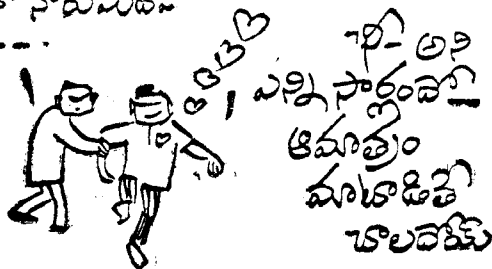 'ఛీ' అని
ఎన్ని సార్లందో
ఆమాత్రం
మాటాడితే
చాలదోయ్